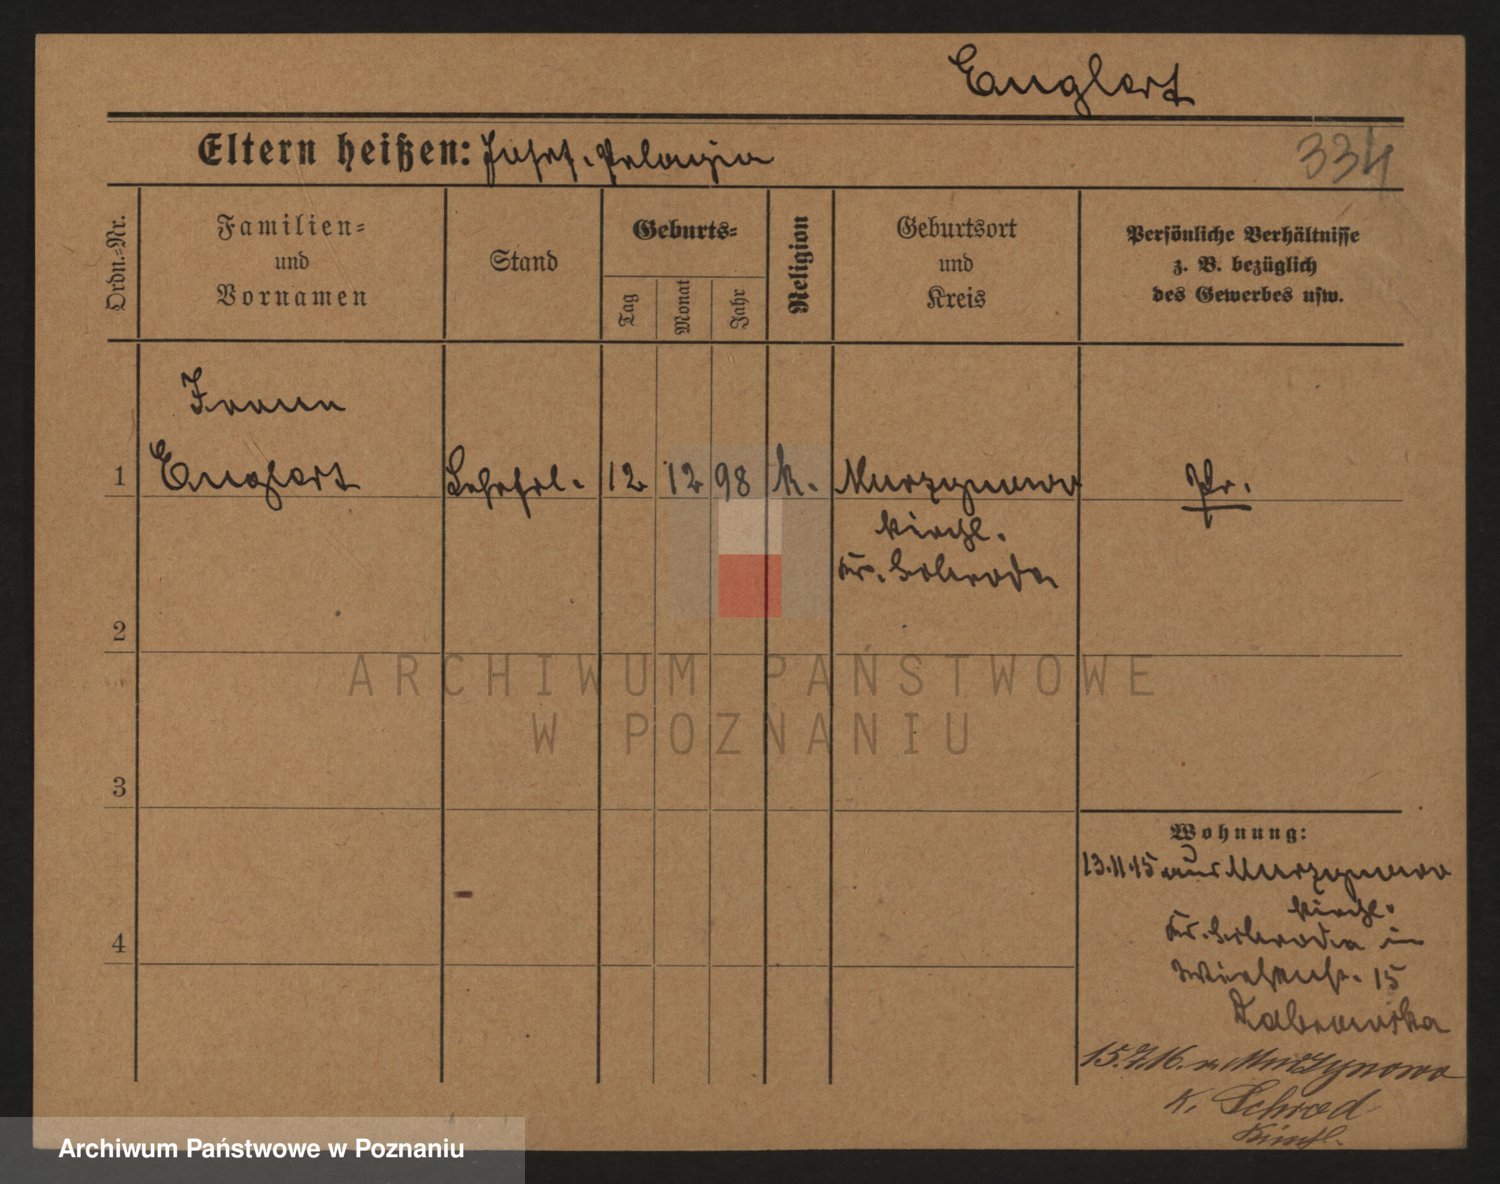 Englert
Eltern heißen: Josef. Pelagia
334
Ordn.-Nr.
Familien-
und
Vornamen
Stand
Geburts-
Tag
Monat
Jahr
Religion
Geburtsort
und
Kreis
Persönliche Verhältnisse
z. B. bezüglich
des Gewerbes usw.
Irene
1 Englert
12 12 98 k. Murzynowo Pr.
kirchl.
Kr. Schroda
2
ARCHIWUM PAŃSTWOWE
W POZNANIU
3
Wohnung:
13.11.15 aus Murzynowo
kirchl.
Kr. Schroda in
15
Dabrowska
15.7.16. n. Murzynowo
K. Schrod
Kirchl.
4
Archiwum Państwowe w Poznaniu